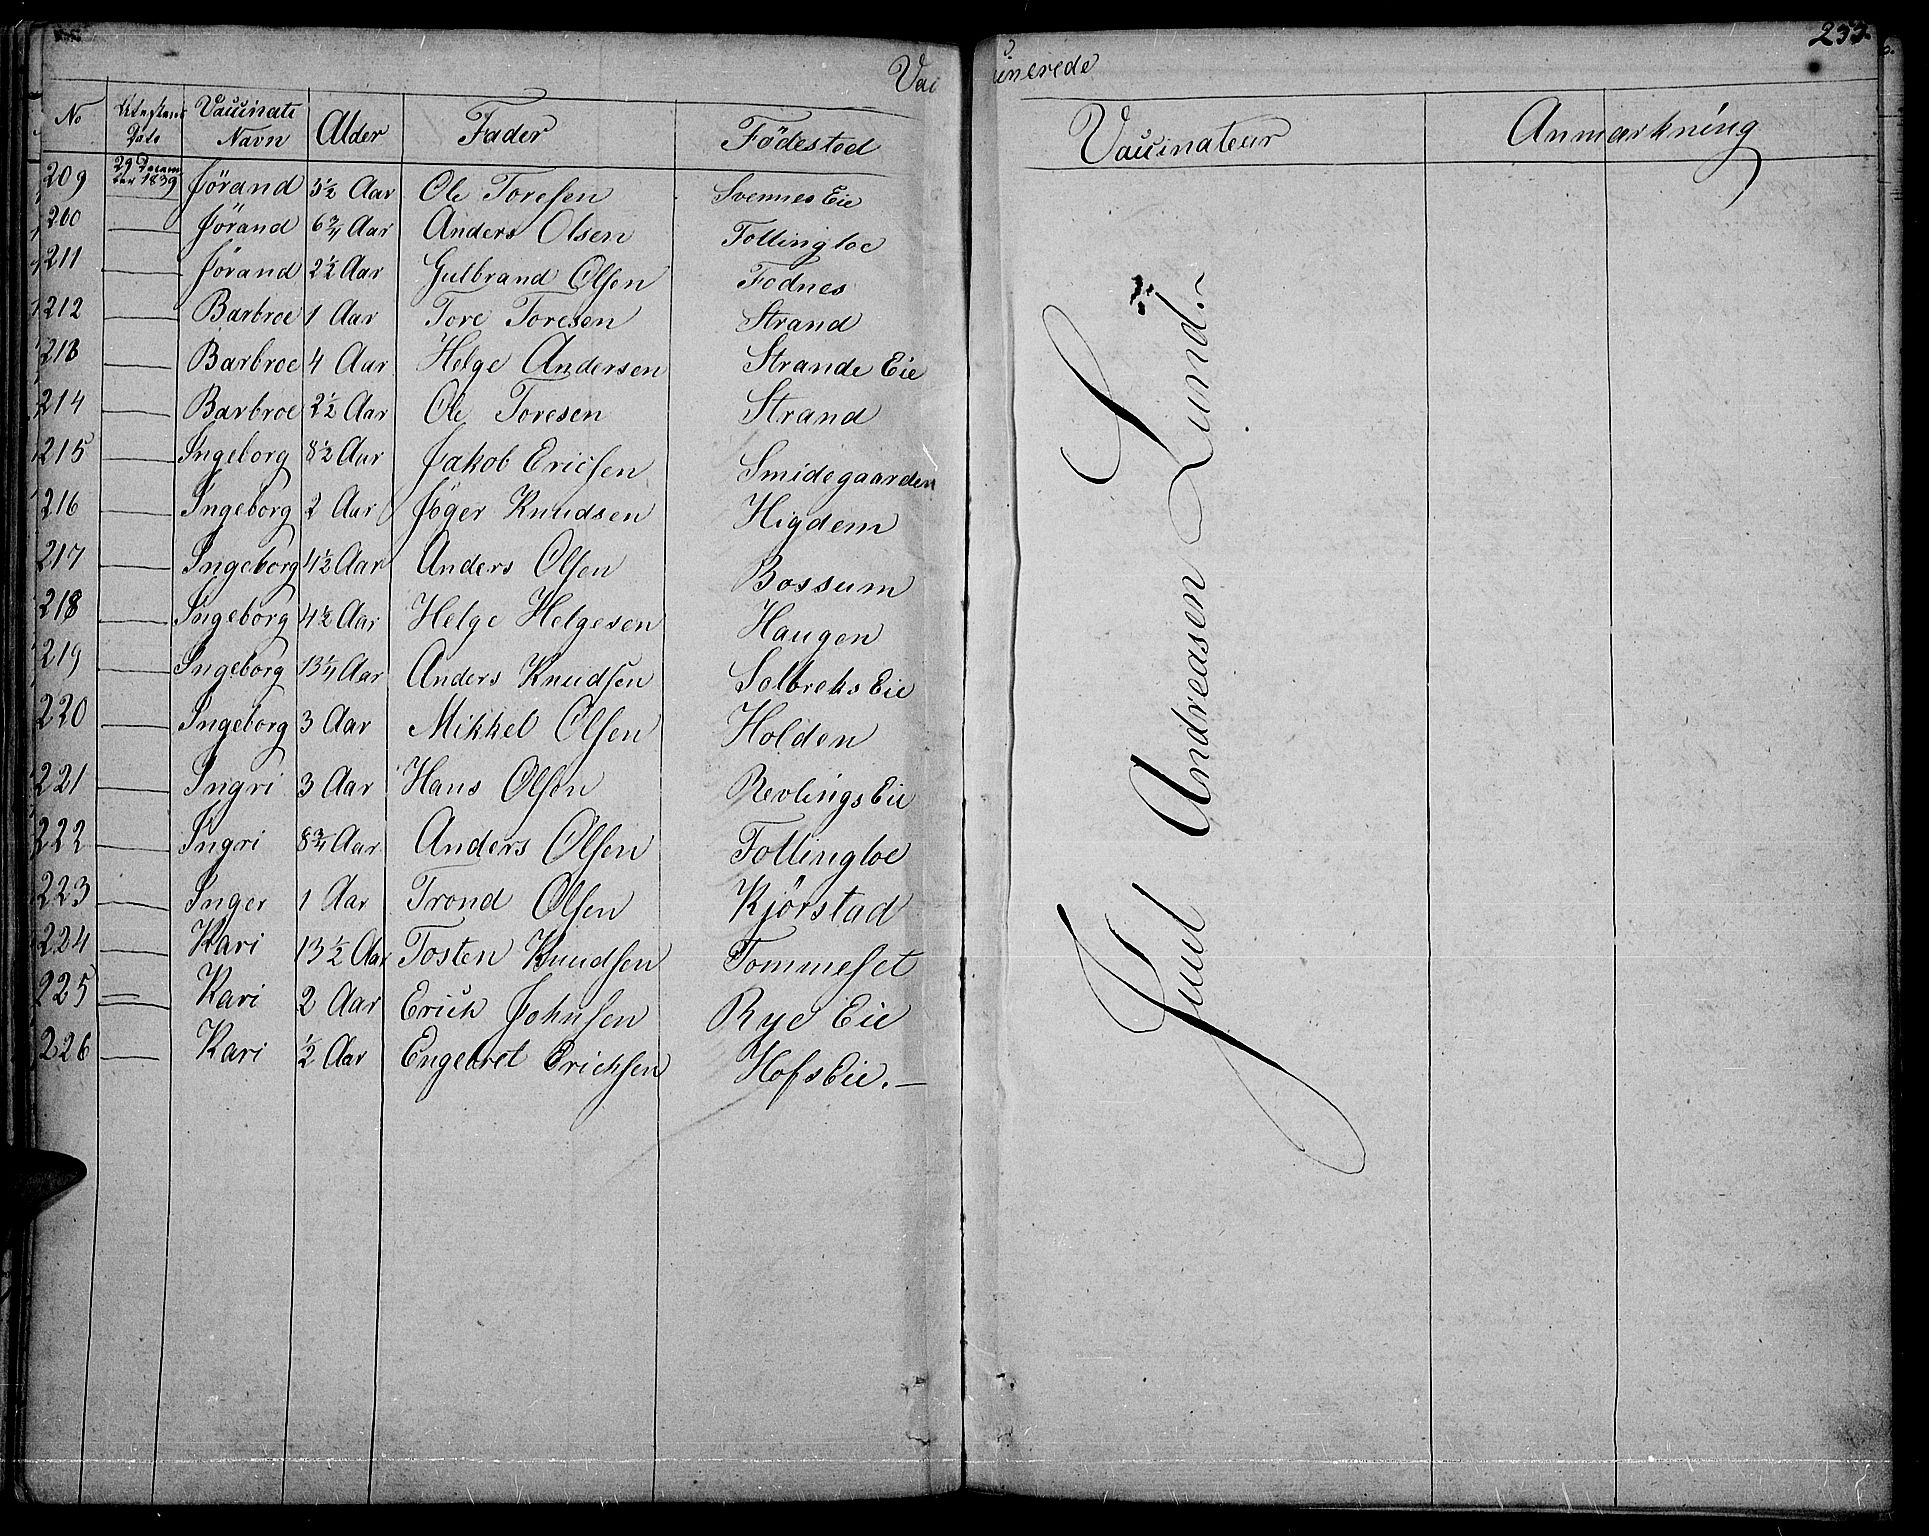 Vaccinerede
233.
No Attestens Dato Vaccinats Navn Alder Fader Födested Vaccinateur Anmærkning
209 29 Decem ber 1839 Jörand 3½ Aar Ole Toresen Svennes Eie
200 — Jörand 6¾ Aar Anders Olsen Follingloe
211 — Jörand 2½ Aar Gulbrand Olsen Fodnes
212 — Barbroe 1 Aar Tore Toresen Strand
213 — Barbroe 4 Aar Helge Andersen Strande Eie
214 — Barbroe 2½ Aar Ole Toresen Strand
215 — Ingeborg 8½ Aar Jakob Ericsen Smidegaarden
216 — Ingeborg 2 Aar Jöger Knudsen Higdem
217 — Ingeborg 4½ Aar Anders Olsen Bossum
218 — Ingeborg 4½ Aar Helge Helgesen Haugen
219 — Ingeborg 13¼ Aar Anders Knudsen Solbreks Eie
220 — Ingeborg 3 Aar Mikkel Olsen Holden
221 — Ingri 3 Aar Hans Olsen Revlings Eie
222 — Ingri 8¾ Aar Anders Olsen Follingloe
223 — Inger 1 Aar Trond Olsen Kjörstad
224 — Kari 13½ Aar Tosten Knudsen Tommeset
225 — Kari 2 Aar Erick Johnsen Rye Eie
226 — Kari ½ Aar Engebret Ericksen Hofs Eie. —
Juul Andreasen Lunde